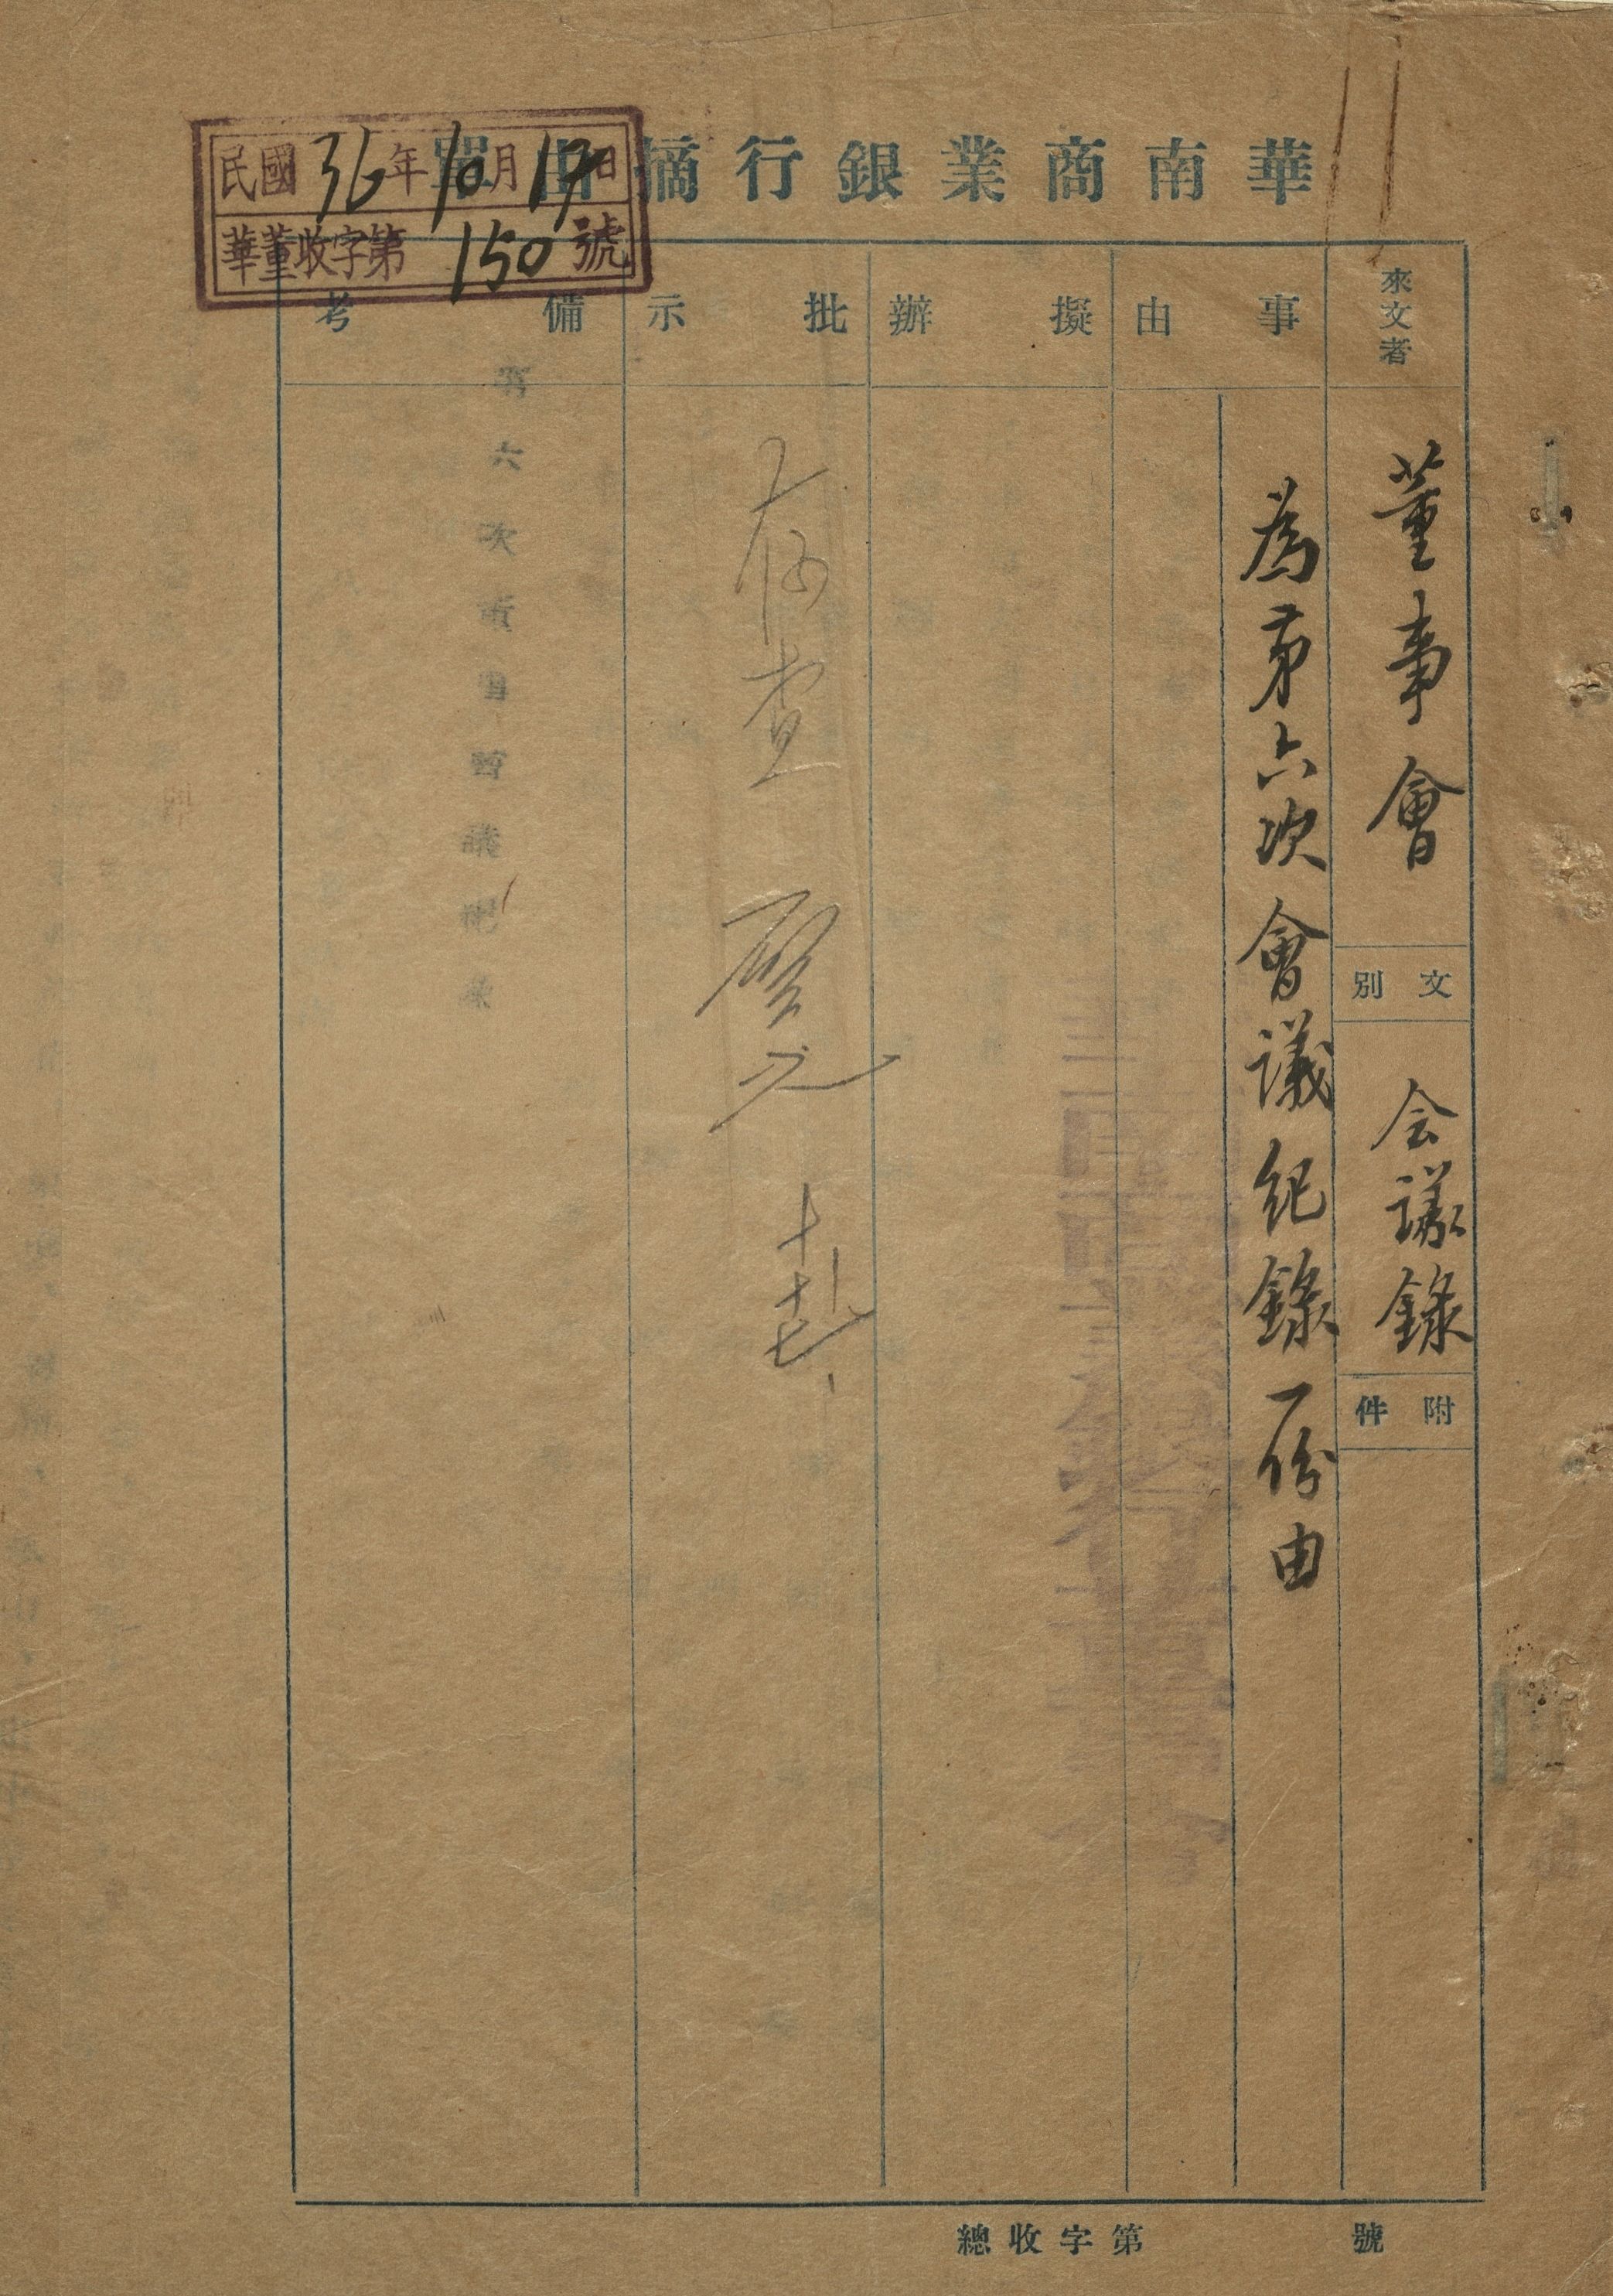 華南商業銀行摘由單
民國36年10月17日
華董收字第150號
來文者
董事會
文別
会議錄
附件
事由
為第六次會議紀錄一份由
擬辦
批示
存查
備考
總收字第 號